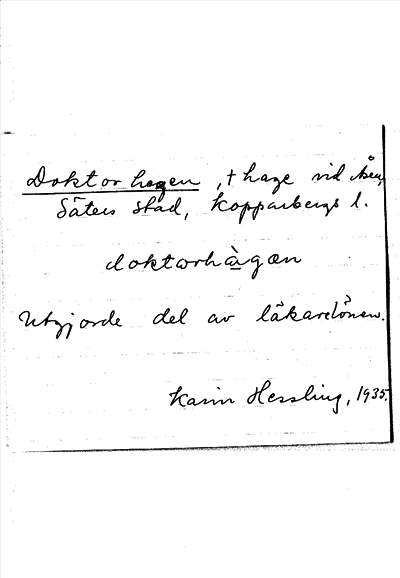 Doktorhagen, † hage vid Åsen,
Säters stad, Kopparbergs l.
doktorhàgæn
Utgjorde del av läkarelönen.
Karin Hessling, 1935.